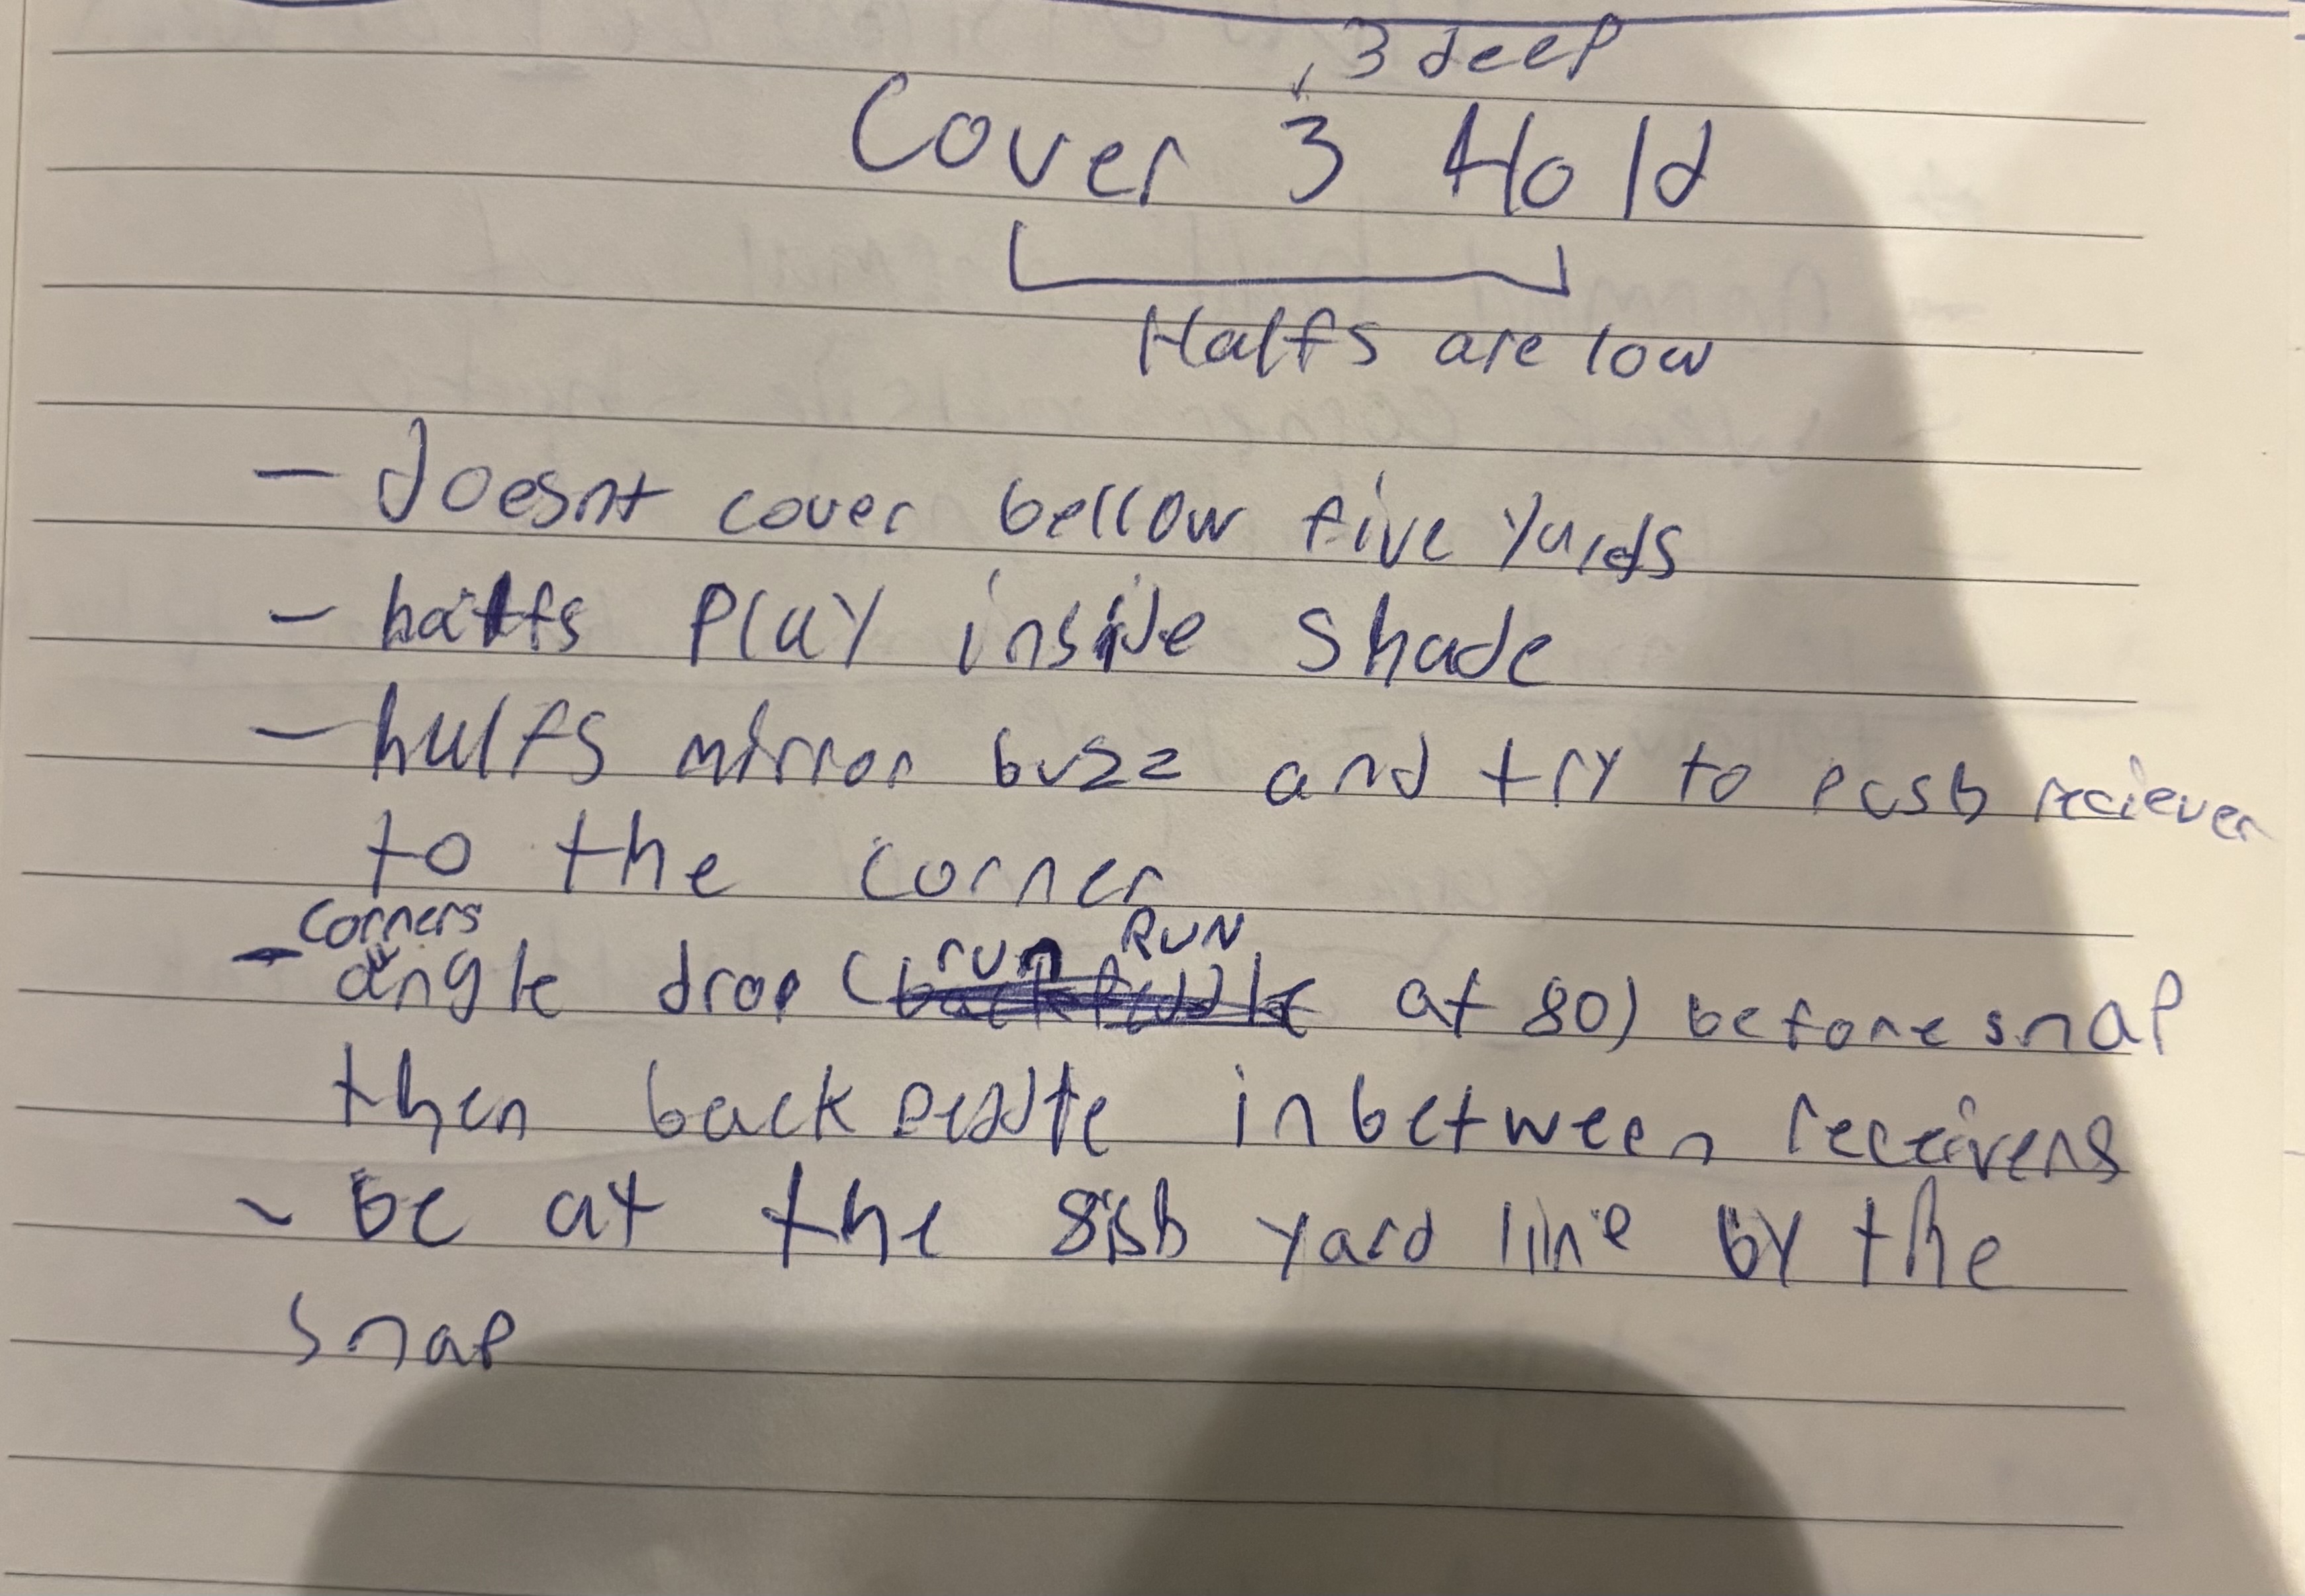 3 deep
Cover 3 Hold
Halfs are low
- doesnt cover bellow five yards
- halfs Play inside shade
- halfs mirror buzz and try to push reciever
to the corner
corners
run RUN
- angle drop ( at 80) before snap
then back peddle inbetween receivers
- be at the yard line by the
snap